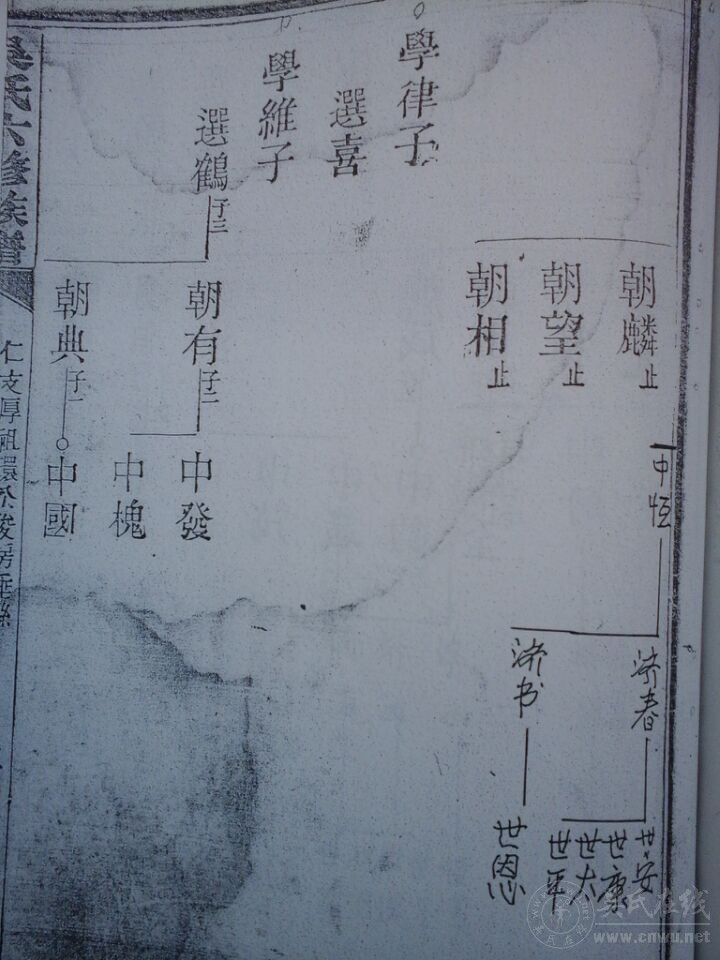 學律子
選喜
學維子
選鶴 子二
朝麟 止
朝望 止
朝相 止
朝有 子二
朝典 子一
中發
中槐
中國
中恒
济春
济书
世安
世康
世太
世平
世恩
吳氏六修族譜
仁支厚祖環公俊房
吴氏在线
www.cnwu.net